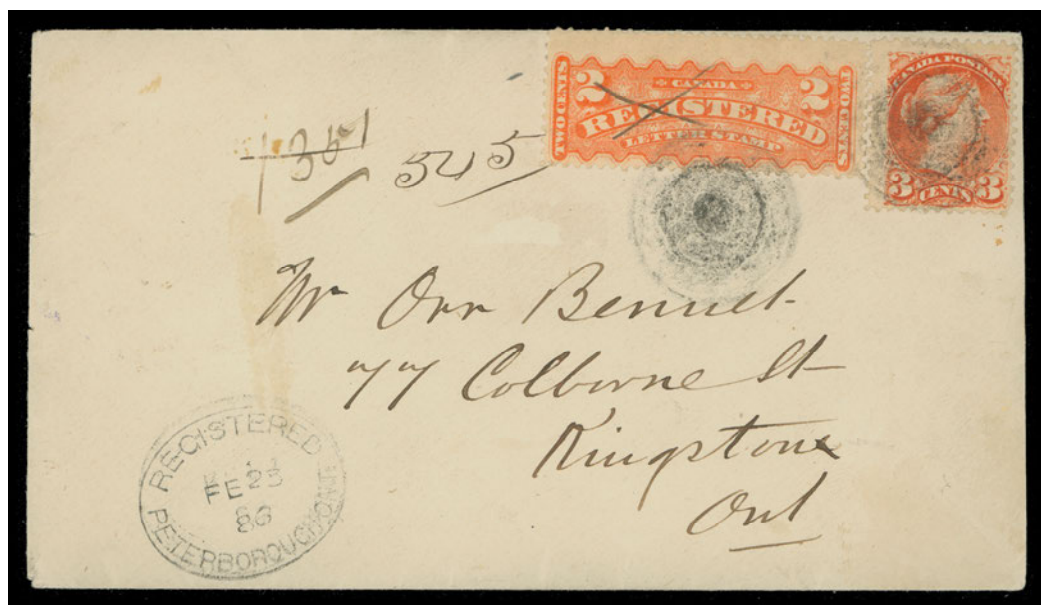 CANADA
2 REGISTERED 2
LETTER STAMP
TWO CENTS
TWO CENTS
CANADA POSTAGE
3 CENTS 3
1351
545
Mr Orr Bennet
77 Colborne St
Kingston
Ont
REGISTERED
FE 23
86
PETERBOROUGH ONT